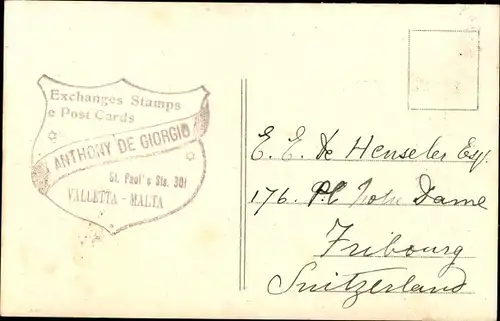 Exchanges Stamps
e Post Cards
ANTHONY DE GIORGIO
St. Paul's Sts. 301
VALLETTA - MALTA
E. E. De Henseler Esq.
176. Pl. Dame
Fribourg
Switzerland